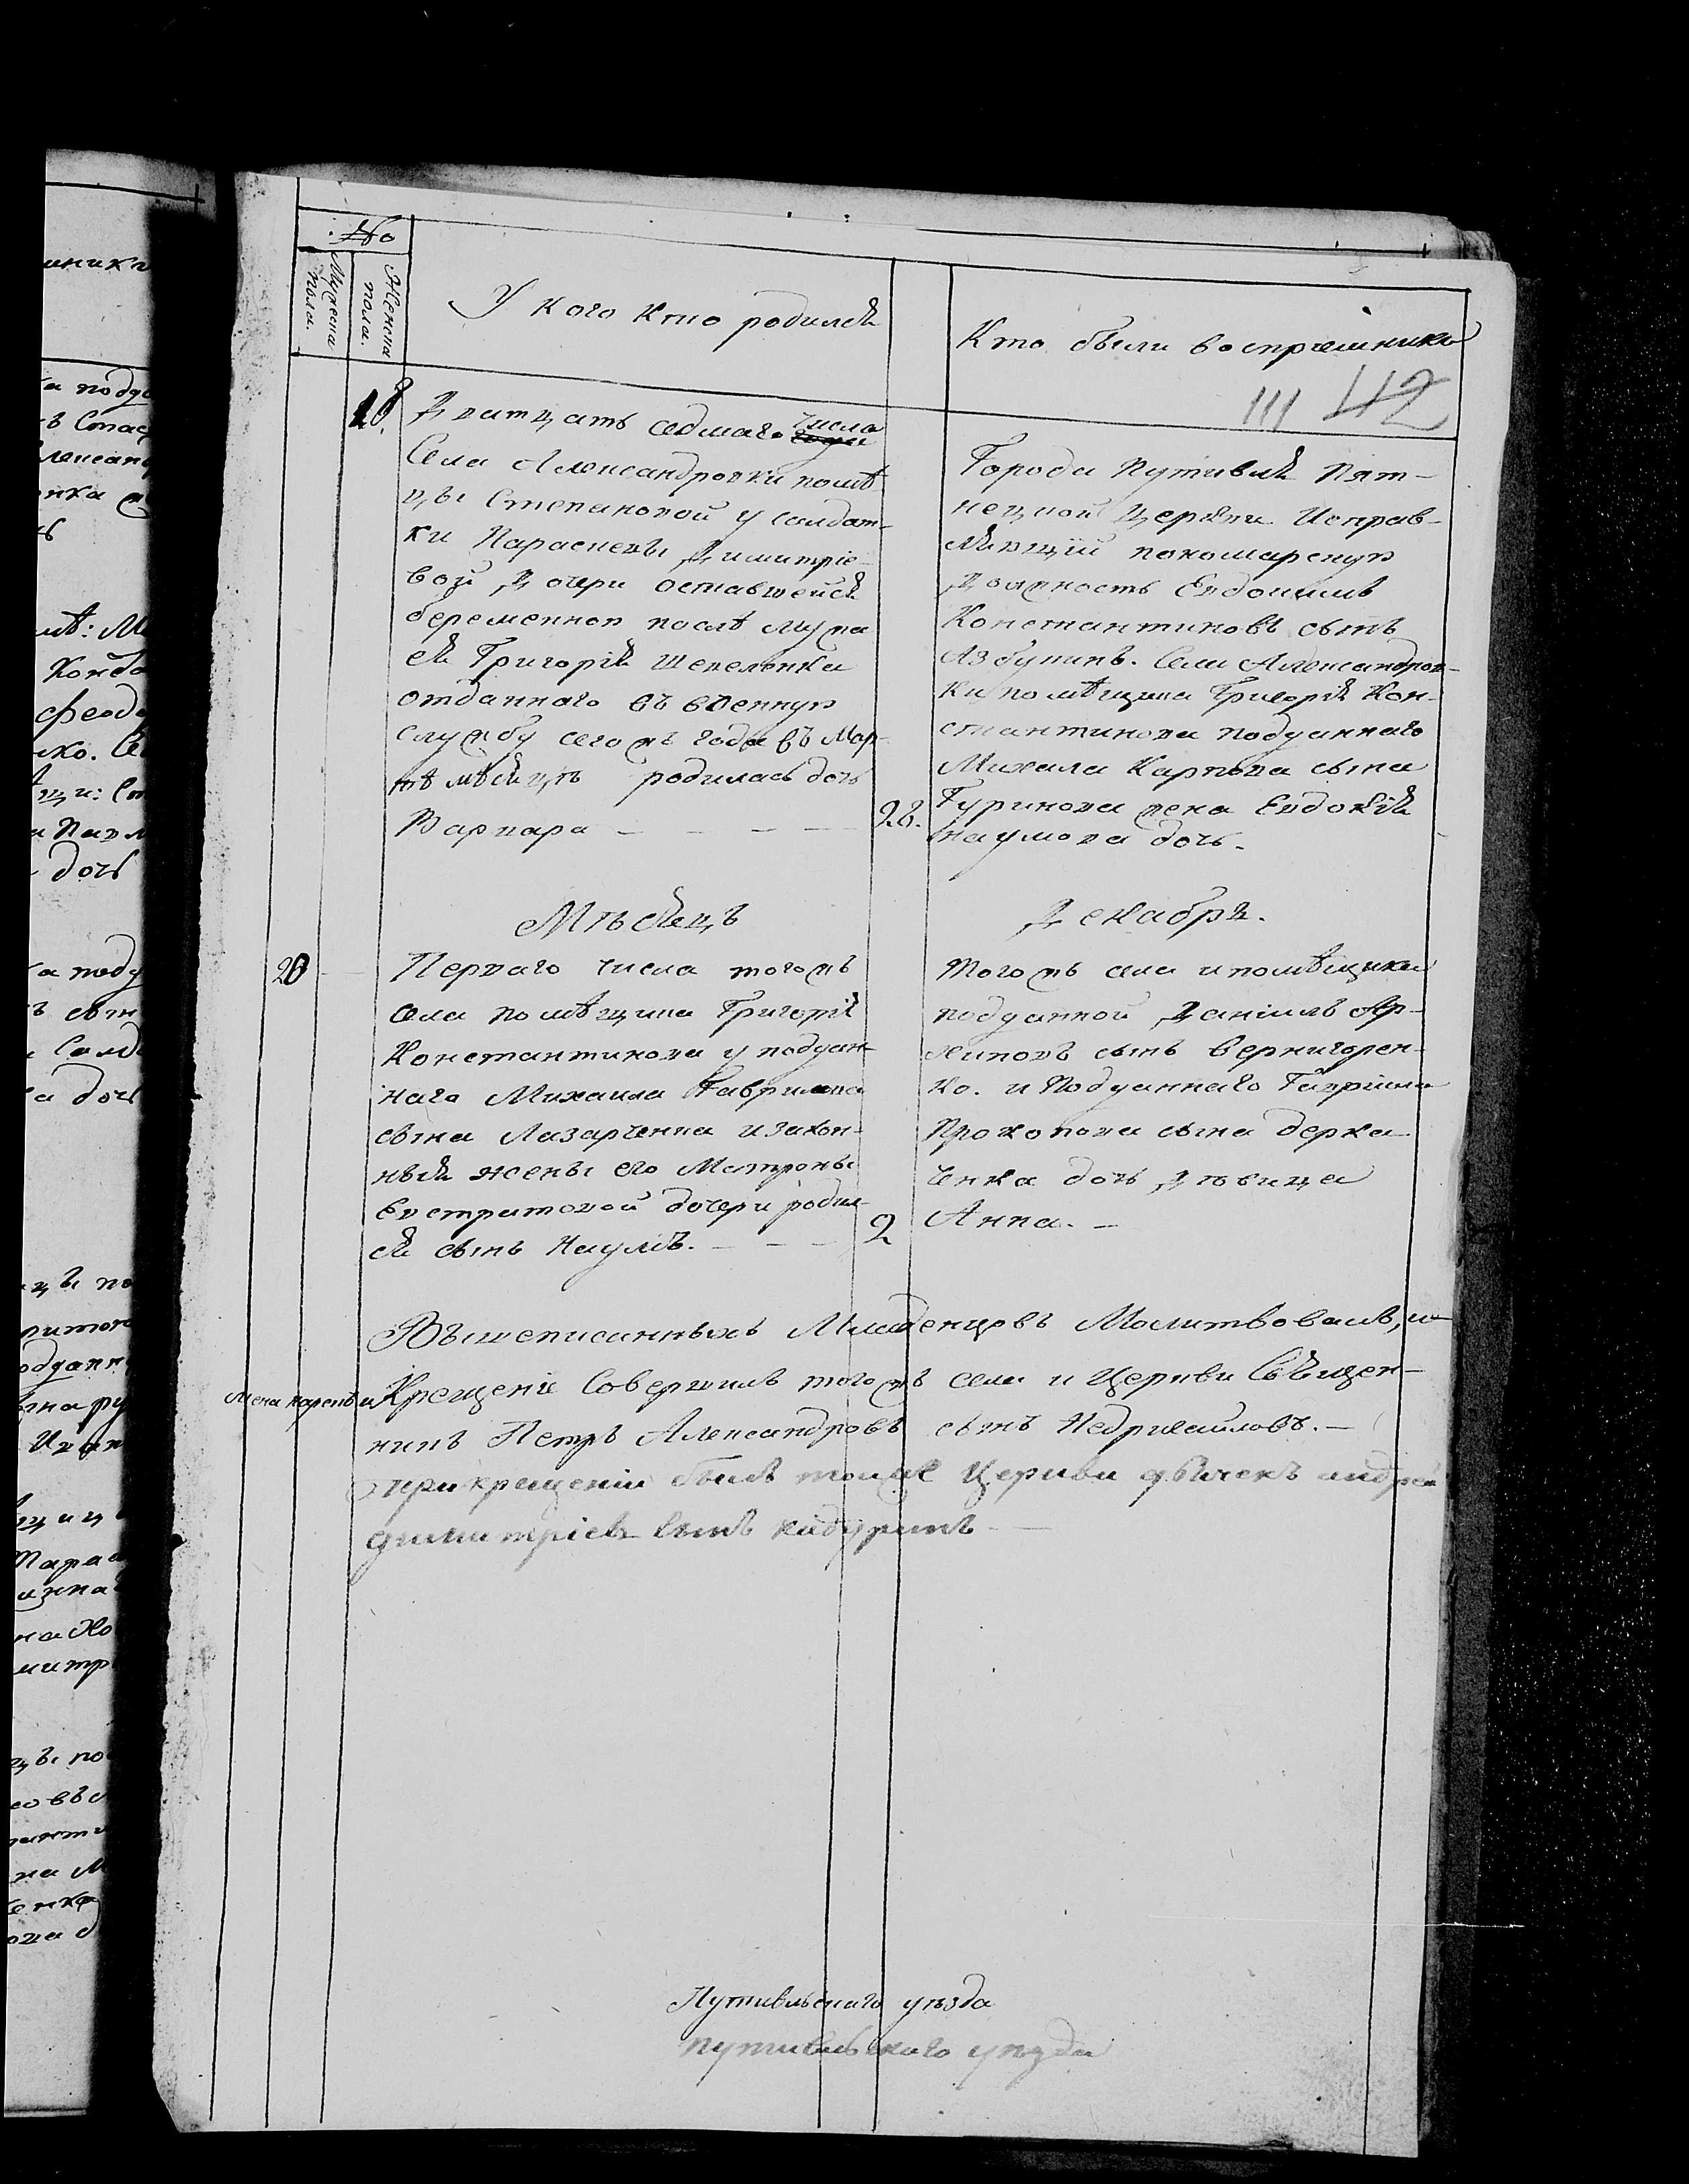 №
Мужеска пола.
Женска пола.
У кого кто родился
Кто были восприемники
111 112
18.
Дватцать седмаго числа
Села Александровки помѣ-
цы Степановой у салдат-
ки Парасцевы Димитріе-
вой дочери оставшейся
беременною послѣ мужа
ея Григорія Шевеленка
отданнаго въ военную
службу сегожъ года въ Мар-
тѣ мѣсяцѣ родилась дочь
Варвара
28.
Города Путивля Пят-
нецкой церкви Исправ-
ляющій пономарскую
должность Евдокимъ
Константиновъ сынъ
Азбукинъ. Села Александров-
ки помѣщика Григорія Кон-
стантинова подданнаго
Михаила Карпова сына
Гуринова жена Евдокія
Наумова дочь.
Мѣсяцъ Декабря.
20
Перваго числа тогожъ
села помѣщика Григорія
Константинова у поддан-
наго Михаила Гаврилова
сына Лазарченка и закон-
ныя жены его Матроны
Евстратовой дочери родил-
ся сынъ Наумъ.
2
Тогожъ села и помѣщика
подданной Даніилъ Ар-
хиповъ сынъ Вернигорен-
ко. и Подданнаго Гавріила
Прокопова сына Дерка
ченка дочь дѣвица
Анна.
Вышеписанныхъ Младенцовъ Молитвовалъ, и
Имена нарекъ и Крещеніе Совершилъ тогожъ села и Церкви Священ-
никъ Петръ Александровъ сынъ Недригайловъ.
при крещеніи былъ тоиже Церкви дьячекъ андрей
димитріевъ сынъ
Путивльскаго уѣзда
путивльскаго уѣзда